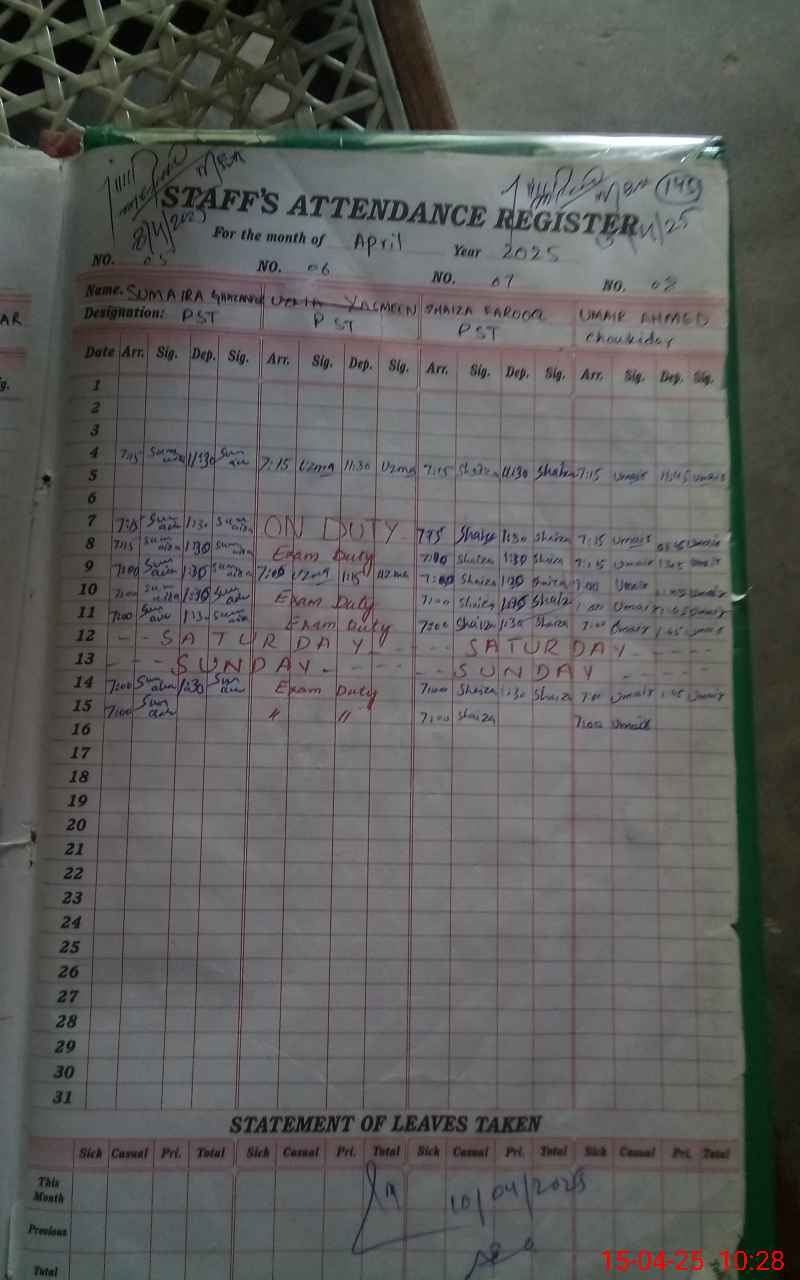 149
STAFF'S ATTENDANCE REGISTER
8/4/2025
For the month of April Year 2025
NO. 05 NO. 06 NO. 07 NO. 08
AR
Name. SUMAIRA UZMA YASMEEN SHAIZA FAROOQ UMAIR AHMED
Designation: PST PST PST Choukidar
g. Date Arr. Sig. Dep. Sig. Arr. Sig. Dep. Sig. Arr. Sig. Dep. Sig. Arr. Sig. Dep. Sig.
1
2
3
4 7:15 Sumaira 11:30 Sumaira 7:15 Uzma 11:30 Uzma 7:15 Shaiza 11:30 Shaiza 7:15 Umair 11:45 Umair
5
6
7 7:15 Sumaira 1:30 Sumaira ON DUTY 7:15 Shaiza 1:30 Shaiza 7:15 Umair 01:45 Umair
8 7:15 Sumaira 1:30 Sumaira Exam Duty 7:00 Shaiza 1:30 Shaiza 7:15 Umair 1:45 Umair
9 7:00 Sumaira 1:30 Sumaira 7:00 Uzma 1:15 Uzma 7:00 Shaiza 1:30 Shaiza 7:00 Umair Umair
10 7:00 Sumaira 1:30 Sumaira Exam Duty 7:00 Shaiza 1:30 Shaiza 7:00 Umair 1:45 Umair
11 7:00 Sumaira 1:30 Sumaira Exam Duty 7:00 Shaiza 1:30 Shaiza 7:00 Umair 1:45 Umair
12 - - SATURDAY - - - - SATURDAY - - - -
13 - - - SUNDAY - - - - - SUNDAY - - - -
14 7:00 Sumaira 1:30 Sumaira Exam Duty 7:00 Shaiza 1:30 Shaiza 7:00 Umair 1:45 Umair
15 7:00 Sumaira " " 7:00 Shaiza 7:00 Umair
16
17
18
19
20
21
22
23
24
25
26
27
28
29
30
31
STATEMENT OF LEAVES TAKEN
Sick Casual Pri. Total Sick Casual Pri. Total Sick Casual Pri. Total Sick Casual Pri. Total
This Month
10/04/2025
Previous
Total
15-04-25 10:28